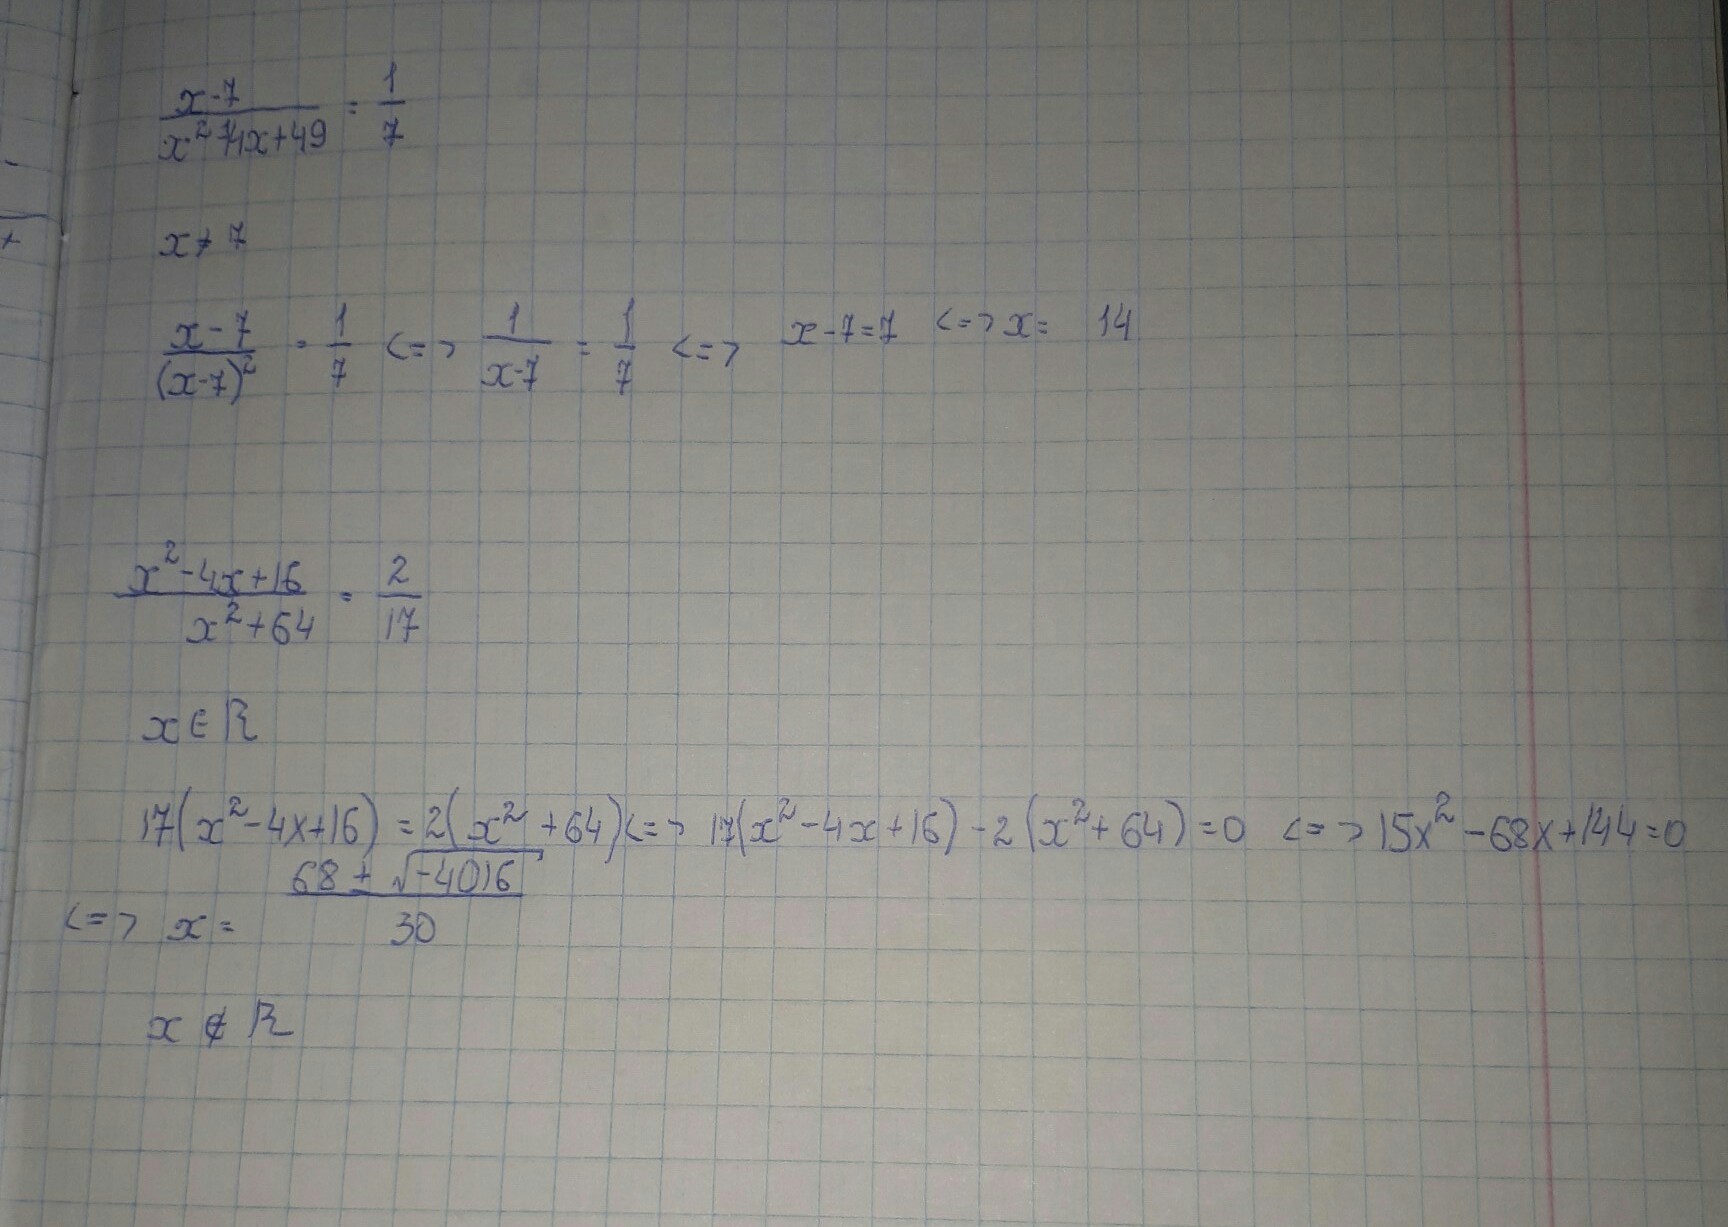 x-7 / x²-14x+49 = 1/7
x ≠ 7
x-7 / (x-7)² = 1/7 <=> 1 / x-7 = 1/7 <=> x-7=7 <=> x= 14
x²-4x+16 / x²+64 = 2/17
x ∈ R
17(x²-4x+16) = 2(x²+64) <=> 17(x²-4x+16) -2(x²+64) =0 <=> 15x²-68x+144=0
<=> x = 68 ± √-4016 / 30
x ∉ R